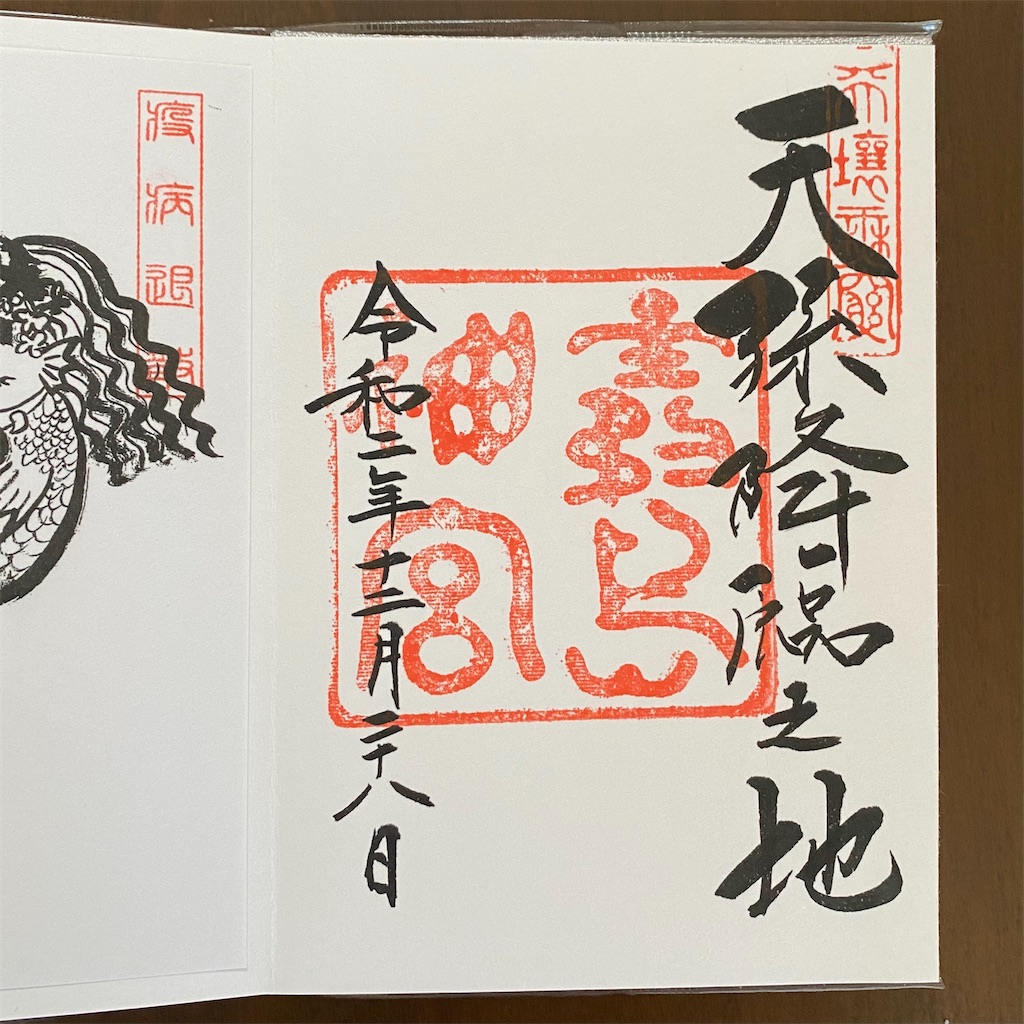 天壤無窮
天孫降臨之地
霧島
神宮
令和二年十二月二十八日
疫病退散